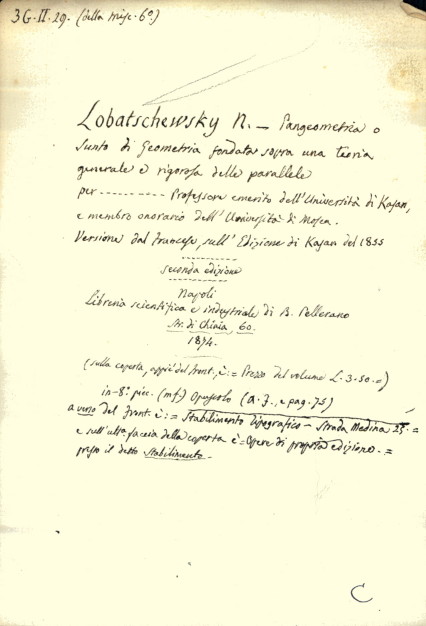 3G·II·29. (della misc. 6º)
Lobatschewsky N. — Pangeometria o
sunto di Geometria fondata sopra una teoria
generale e rigorosa delle parallele
per ---------- Professore emerito dell'Università di Kasan,
e membro onorario dell'Università di Mosca.
Versione dal francese, sull'Edizione di Kasan del 1855
seconda edizione
Napoli
Libreria scientifica e industriale di B. Pellerano
Str. di Chiaia, 60.
1874.
(sulla coperta, del front., è := Prezzo del volume L. 3-50.=)
in-8º picc. (mf) Opuscolo (a. f., e pag. 75)
a verso del front. è := Stabilimento Tipografico — Strada Medina 25. =
e sull'ulta. faccia della coperta è = Opere di propria edizione. =
presso il detto Stabilimento.
C